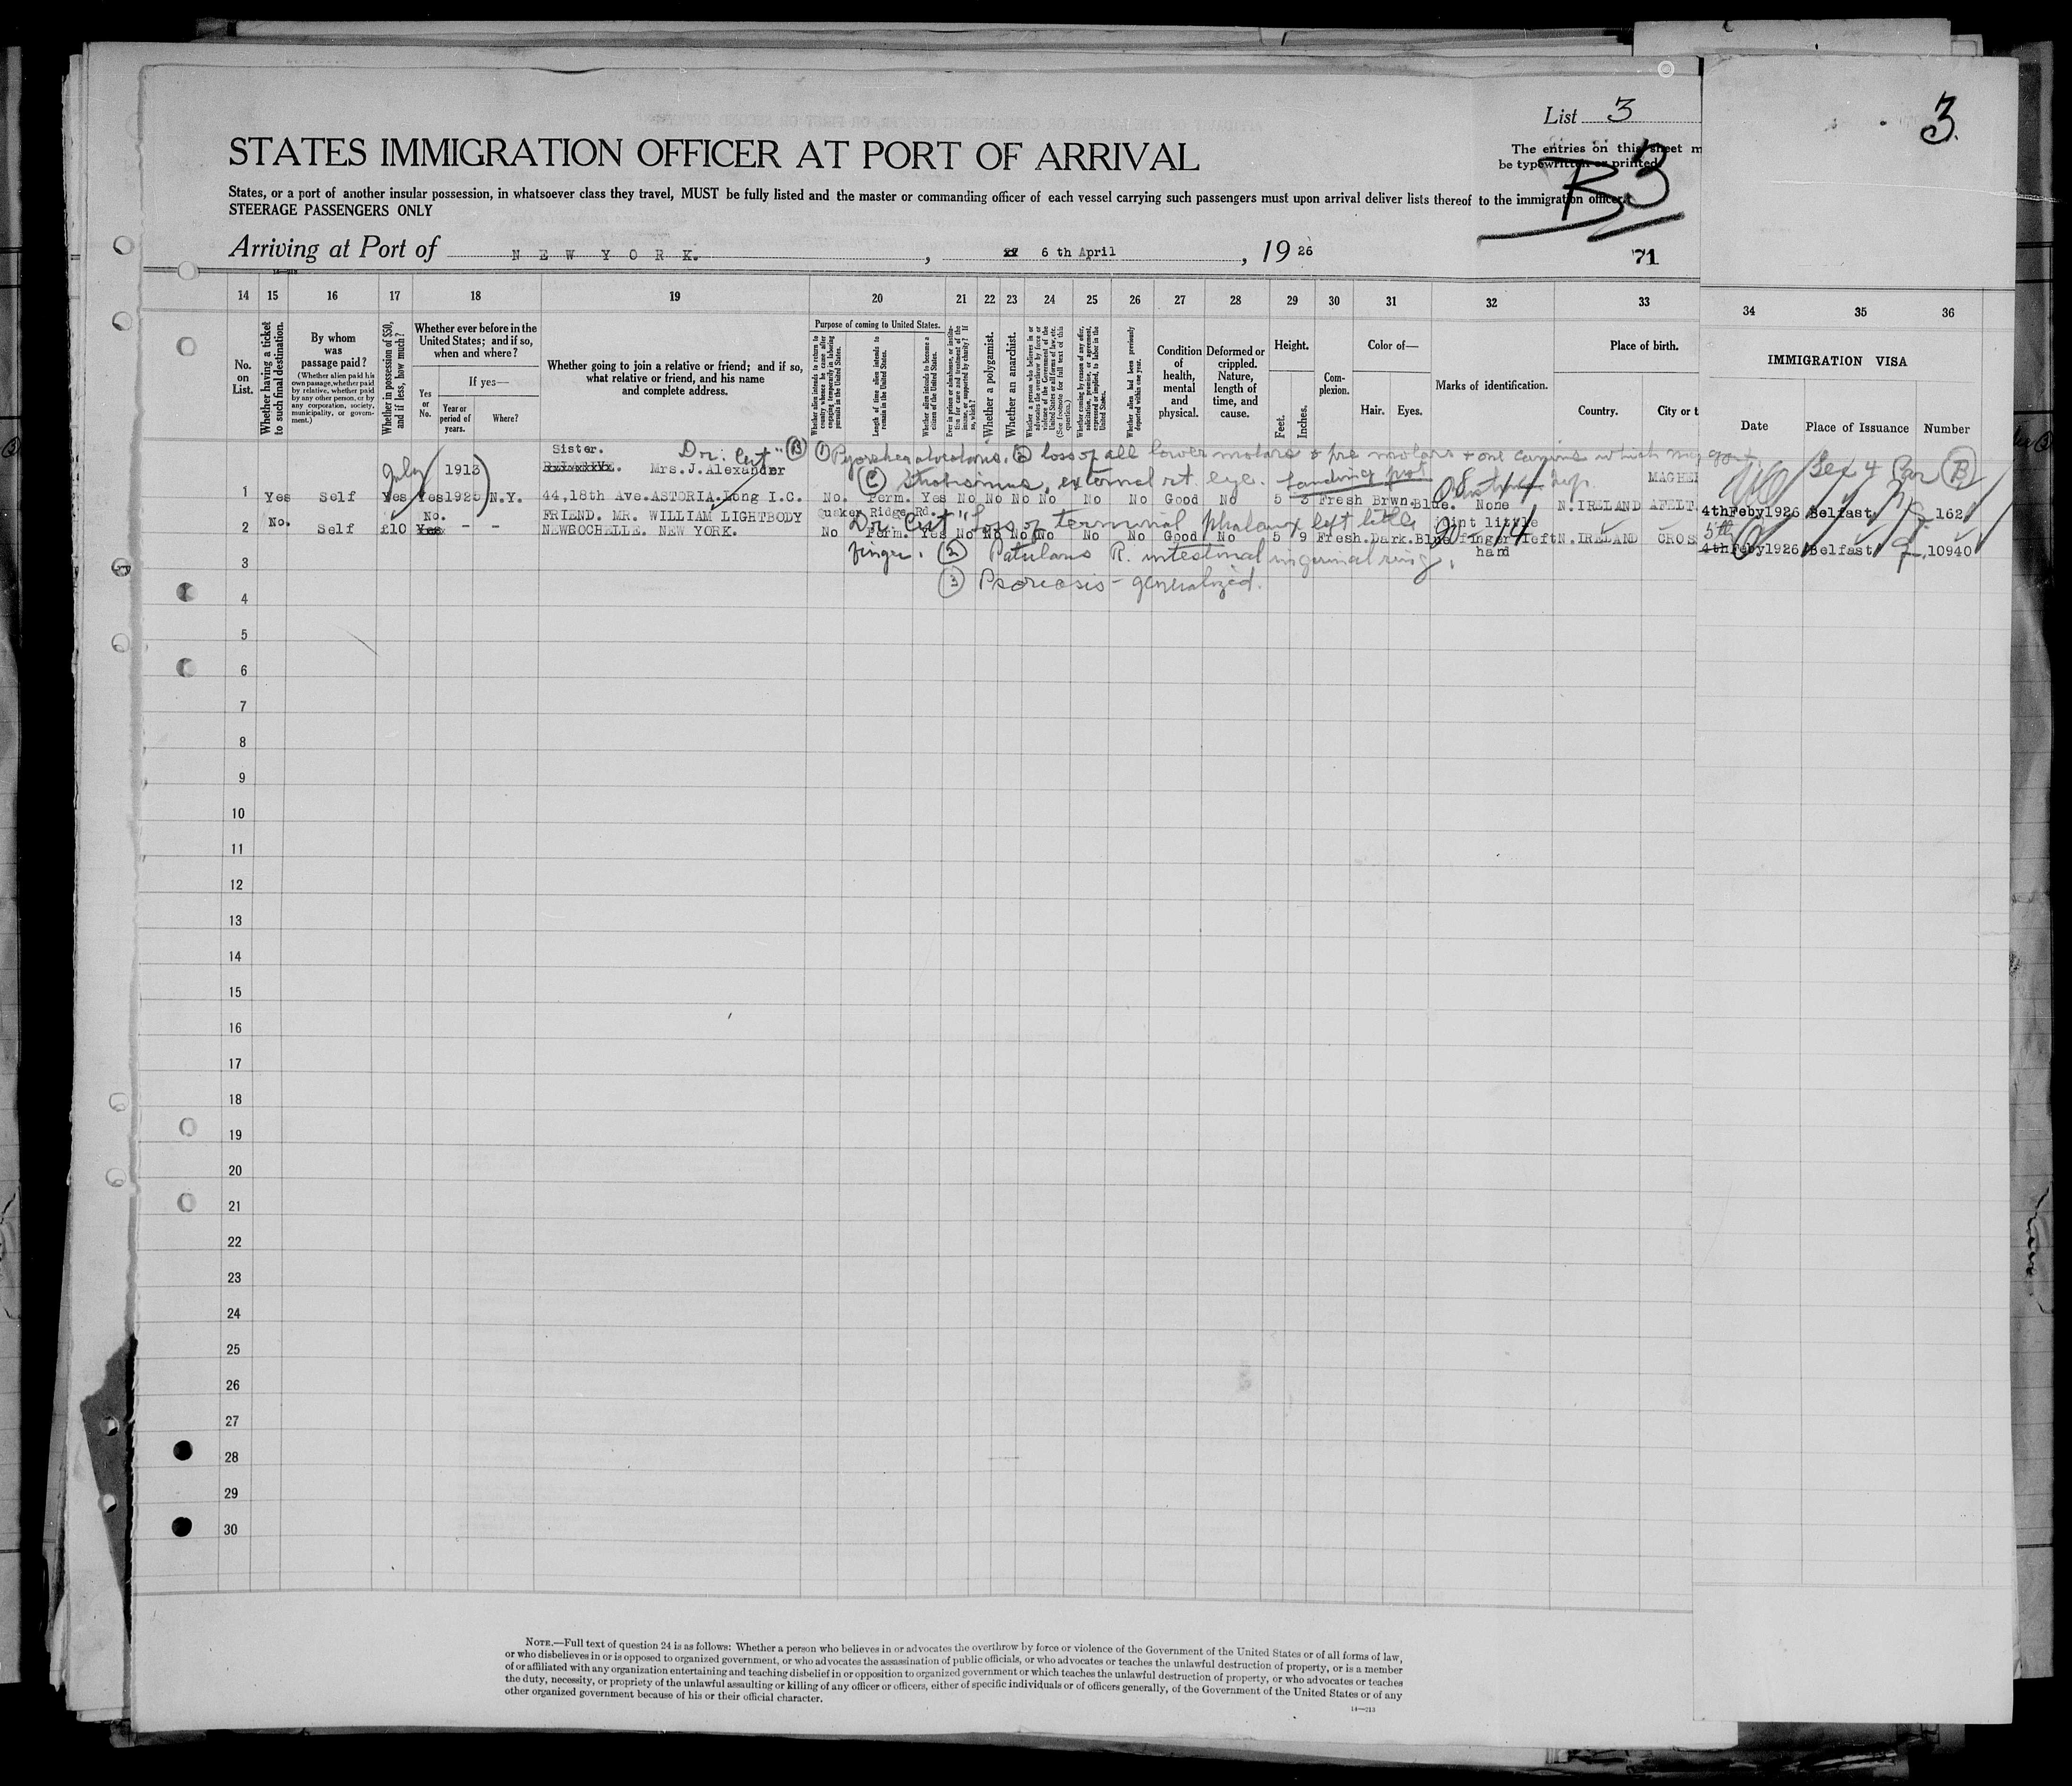 List 3
3.
The entries on this sheet m
be typewritten or printed.
B3
STATES IMMIGRATION OFFICER AT PORT OF ARRIVAL
States, or a port of another insular possession, in whatsoever class they travel, MUST be fully listed and the master or commanding officer of each vessel carrying such passengers must upon arrival deliver lists thereof to the immigration officer.
STEERAGE PASSENGERS ONLY
Arriving at Port of NEW YORK. , 6 th April , 19 26
71
14 15 16 17 18 19 20 21 22 23 24 25 26 27 28 29 30 31 32 33 34 35 36
No. on List.
Whether having a ticket to such final destination.
By whom was passage paid?
(Whether alien paid his own passage, whether paid by relative, whether paid by any other person, or by any corporation, society, municipality, or government.)
Whether in possession of $50, and if less, how much?
Whether ever before in the United States; and if so, when and where?
Yes or No.
If yes—
Year or period of years.
Where?
Whether going to join a relative or friend; and if so, what relative or friend, and his name and complete address.
Purpose of coming to United States.
Length of time alien intends to remain in the United States.
Whether alien intends to become a citizen of the United States.
Whether a polygamist.
Whether an anarchist.
Whether alien had been previously deported within one year.
Condition of health, mental and physical.
Deformed or crippled. Nature, length of time, and cause.
Height.
Feet.
Inches.
Complexion.
Color of—
Hair.
Eyes.
Marks of identification.
Place of birth.
Country.
City or t
IMMIGRATION VISA
Date
Place of Issuance
Number
Sister. Dr. Cert" (B) (1) Pyorrhea alveolaris, (2) loss of all lower molars & pre molars + one canine which may
July 1913 RELATIVE. Mrs.J.Alexander (2) Strabismus, external rt. eye. Sec 4 Par (B)
1 Yes Self Yes Yes 1925 N.Y. 44,18th Ave.ASTORIA.Long I.C. No. Perm. Yes No No No No No No Good No 5 3 Fresh Brwn.Blue. None N.IRELAND 4thFeby1926 Belfast 162
No. No. FRIEND. MR. WILLIAM LIGHTBODY Quaker Ridge Rd. Dr. Cert "Loss of terminal phalanx left little joint little 5th
2 Self £10 Yes - - NEWROCHELLE. NEW YORK. No Perm. Yes No No No No No No Good No 5 9 Fresh.Dark.Blue finger left N.IRELAND CROS 4thFeby1926 Belfast 10940
finger. (2) Patulous R. intestinal inguinal ring. hand
3 (3) Psoriasis - generalized.
4
5
6
7
8
9
10
11
12
13
14
15
16
17
18
19
20
21
22
23
24
25
26
27
28
29
30
NOTE.—Full text of question 24 is as follows: Whether a person who believes in or advocates the overthrow by force or violence of the Government of the United States or of all forms of law,
or who disbelieves in or is opposed to organized government, or who advocates the assassination of public officials, or who advocates or teaches the unlawful destruction of property, or is a member
of or affiliated with any organization entertaining and teaching disbelief in or opposition to organized government or which teaches the unlawful destruction of property, or who advocates or teaches
the duty, necessity, or propriety of the unlawful assaulting or killing of any officer or officers, either of specific individuals or of officers generally, of the Government of the United States or of any
other organized government because of his or their official character.
14—213